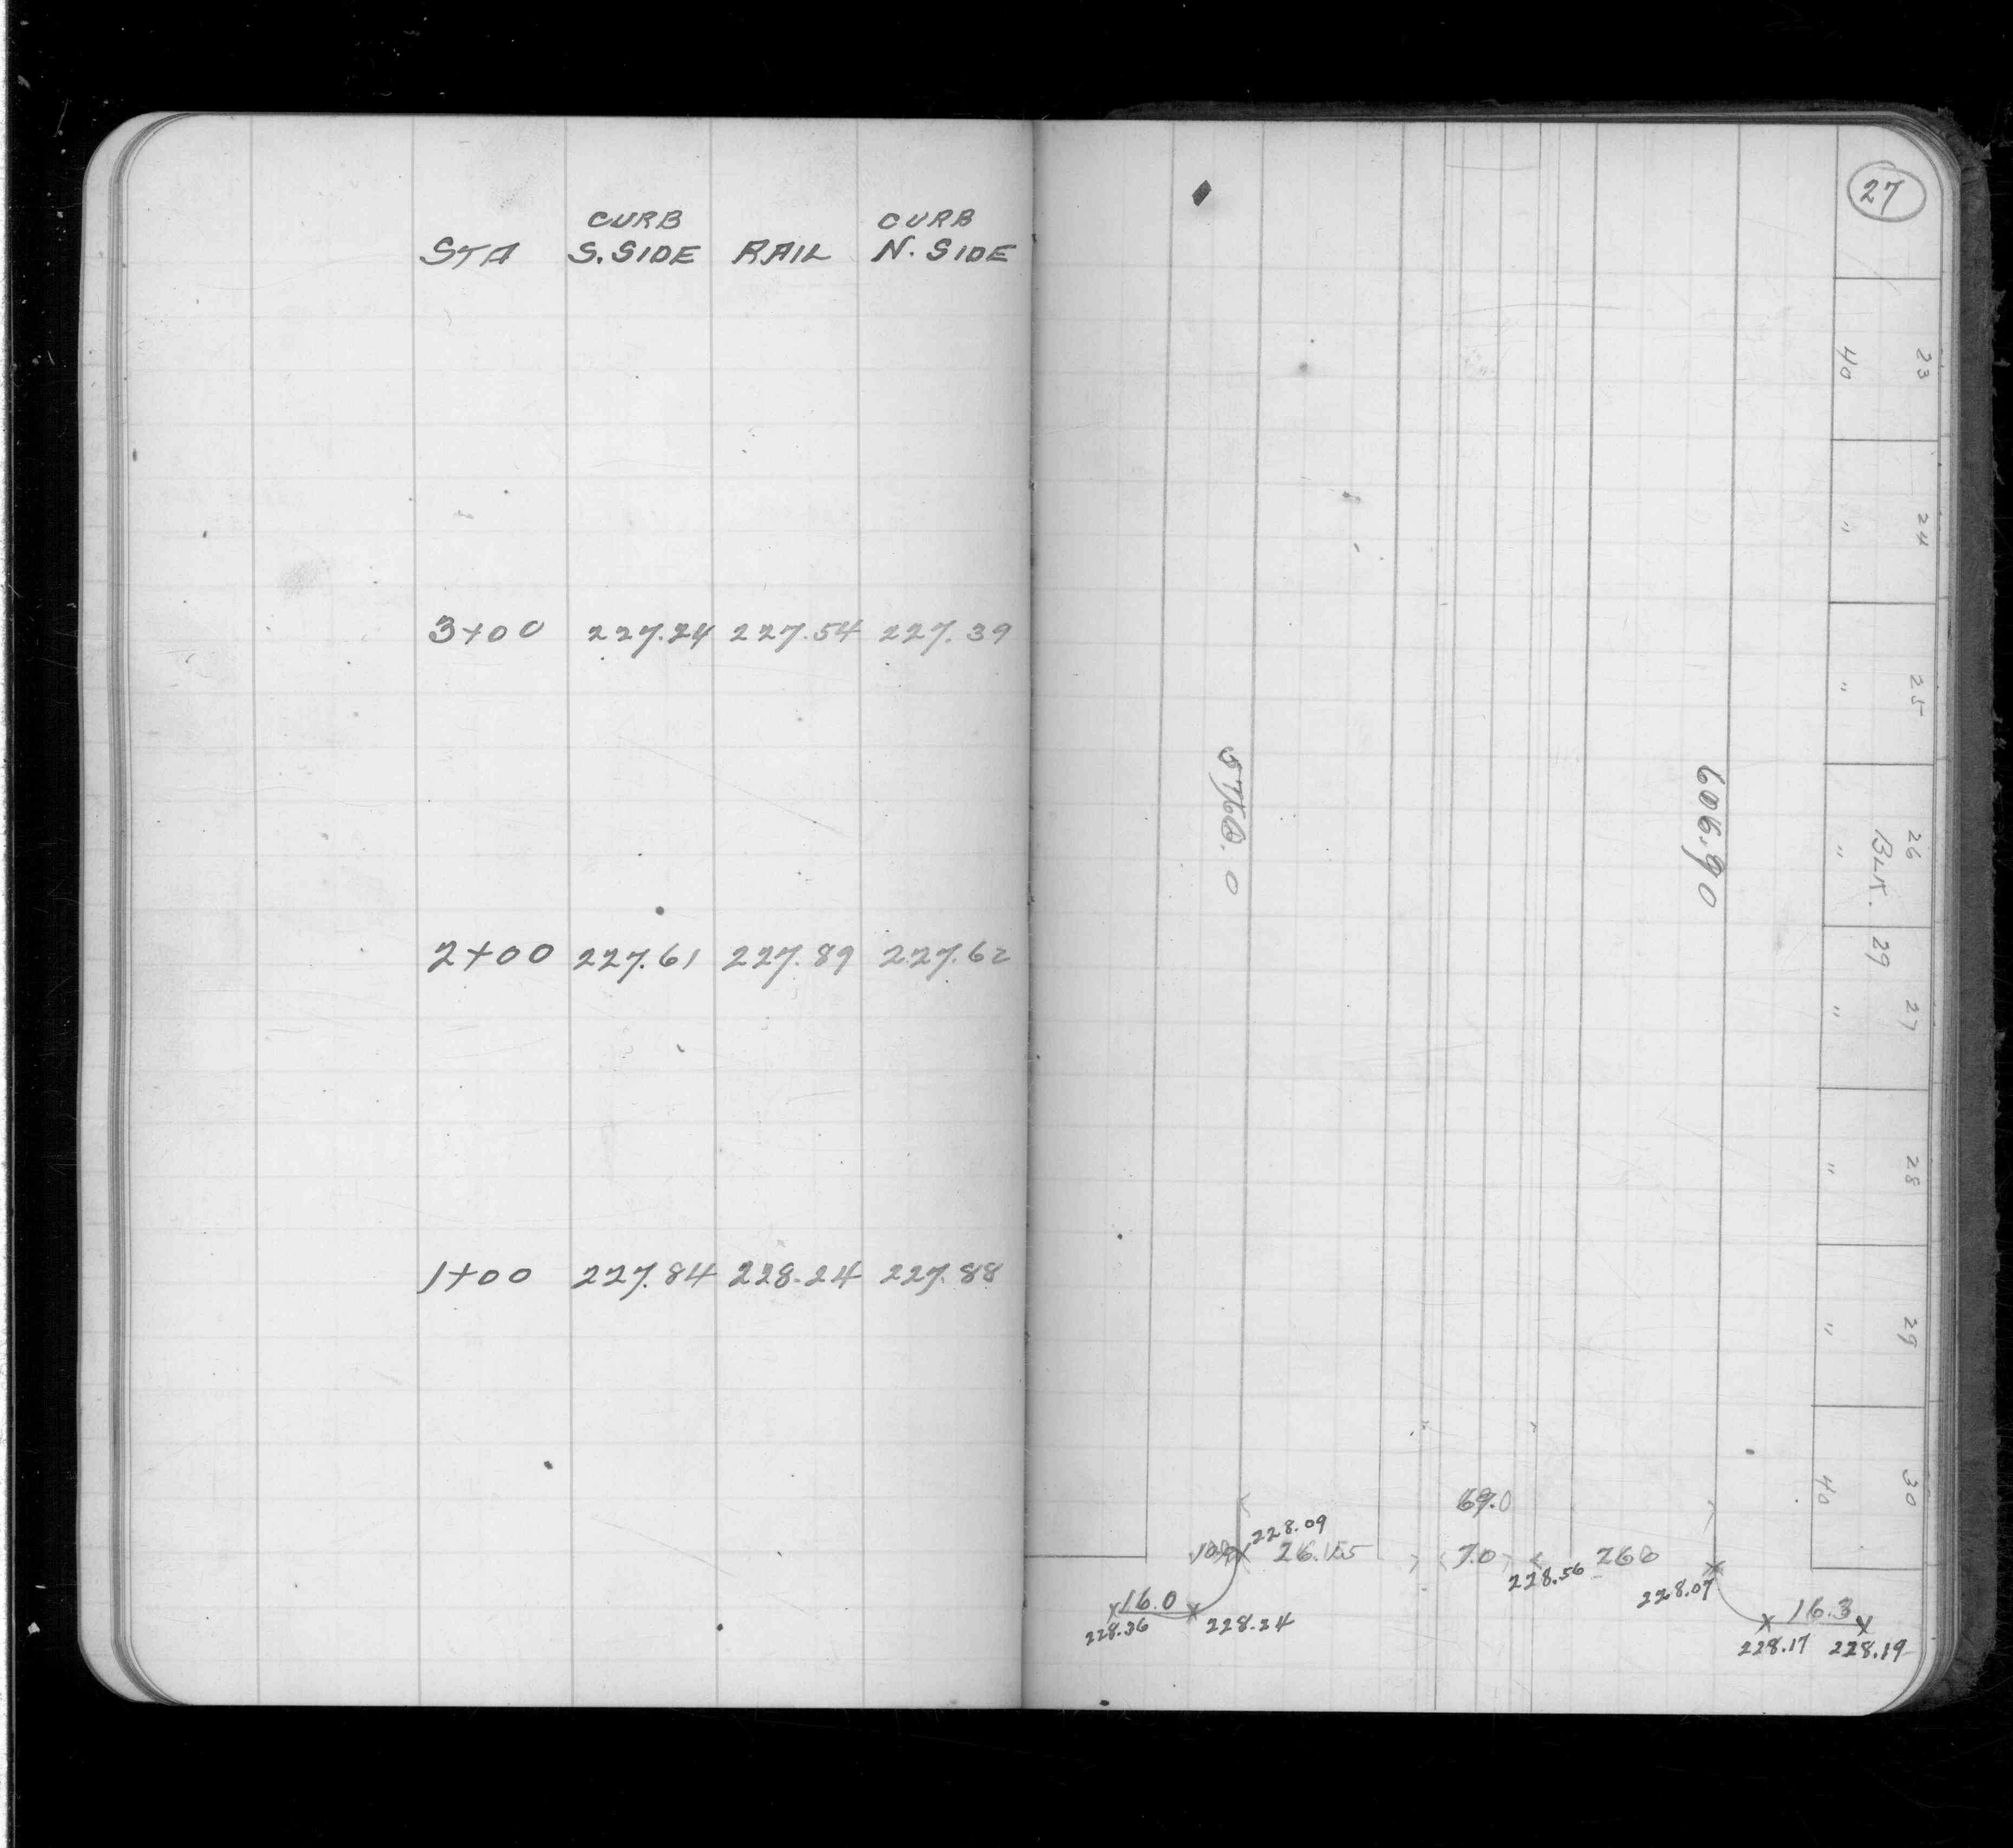 CURB CURB
STA S. SIDE RAIL N. SIDE
3+00 227.24 227.54 227.39
2+00 227.61 227.89 227.62
1+00 227.84 228.24 227.88
27
23
40
24
"
25
"
26
"
BLK. 29
27
"
28
"
29
"
30
40
606.90
69.0
228.09
7.0
26.0
228.56
228.07
16.0
228.36
228.24
16.3
228.17 228.19